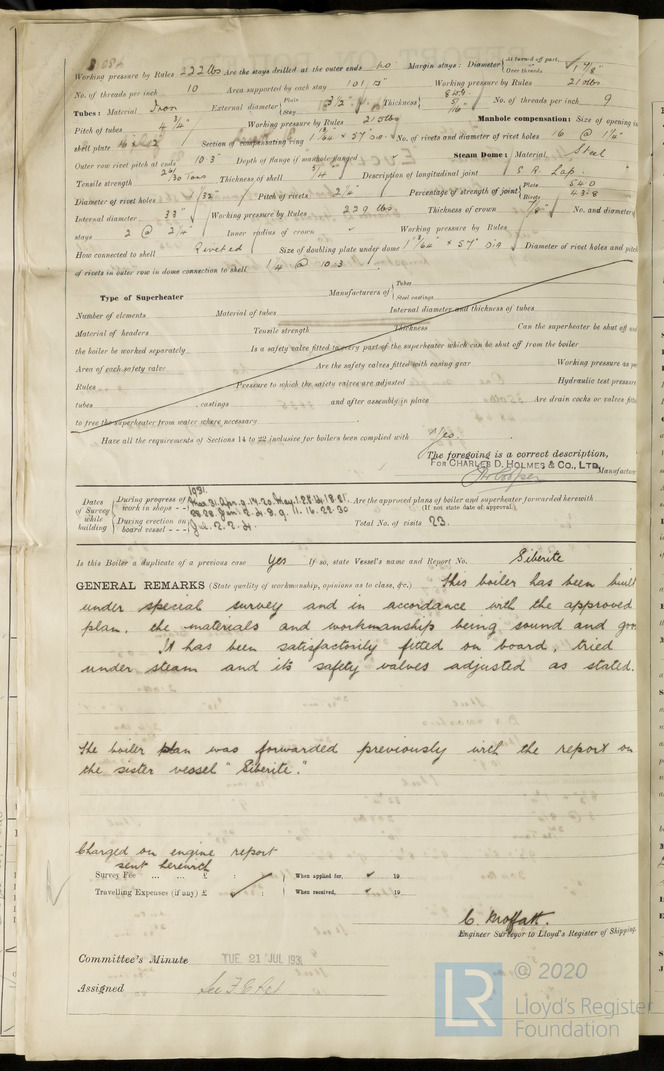 Working pressure by Rules 222 lbs Are the stays drilled at the outer ends no Margin stays: Diameter { At turned off part, Over threads 1 7/8"
No. of threads per inch 10 Area supported by each stay 101 □" Working pressure by Rules 210 lbs
Tubes: Material Iron External diameter { Plain Stay 3½" Thickness { 8 w.g. 5/16" No. of threads per inch 9
Pitch of tubes 4¾" Working pressure by Rules 215 lbs Manhole compensation: Size of opening in
shell plate 16 x 12 Section of compensating ring No. of rivets and diameter of rivet holes 16 @ 1¼"
Outer row rivet pitch at ends 10.3" Depth of flange if manhole flanged Steam Dome: Material Steel
Tensile strength 26/30 tons Thickness of shell 3/4" Description of longitudinal joint S. R. Lap.
Diameter of rivet holes Pitch of rivets 2¼" Percentage of strength of joint { Plate 54.0 Rivets 43.8
Internal diameter 33" Working pressure by Rules 229 lbs Thickness of crown 7/8" No. and diameter of
stays 2 @ 2¼" Inner radius of crown Working pressure by Rules
How connected to shell Riveted Size of doubling plate under dome x 57" Dia Diameter of rivet holes and pitch
of rivets in outer row in dome connection to shell 1¼ @ 10.3
Type of Superheater Manufacturers of { Tubes Steel castings
Number of elements Material of tubes Internal diameter and thickness of tubes
Material of headers Tensile strength Thickness Can the superheater be shut off and
the boiler be worked separately Is a safety valve fitted to every part of the superheater which can be shut off from the boiler
Area of each safety valve Are the safety valves fitted with easing gear Working pressure as per
Rules Pressure to which the safety valves are adjusted Hydraulic test pressure
tubes castings and after assembly in place Are drain cocks or valves fitted
to free the superheater from water where necessary
Have all the requirements of Sections 14 to 22 inclusive for boilers been complied with Yes.
The foregoing is a correct description,
FOR CHARLES D. HOLMES & CO., LTD. Manufacturer
Dates of Survey while building { During progress of work in shops - - 1931 Mar. 31. Apr.
During erection on board vessel - - - Jul. 2. 2. 21.
Are the approved plans of boiler and superheater forwarded herewith (If not state date of approval.)
Total No. of visits 23.
Is this Boiler a duplicate of a previous case Yes If so, state Vessel's name and Report No. Siberite
GENERAL REMARKS (State quality of workmanship, opinions as to class, &c.) This boiler has been built
under special survey and in accordance with the approved
plan, the materials and workmanship being sound and good
It has been satisfactorily fitted on board, tried
under steam and its safety valves adjusted as stated.
The boiler plan was forwarded previously with the report on
the sister vessel "Siberite."
Charged on engine report
sent herewith
Survey Fee ... ... £ : : When applied for, 19
Travelling Expenses (if any) £ : : When received, 19
C. Moffatt.
Engineer Surveyor to Lloyd's Register of Shipping.
Committee's Minute TUE. 21 JUL 1931
Assigned See F.E. Rpt
LR @ 2020
Lloyd's Register
Foundation